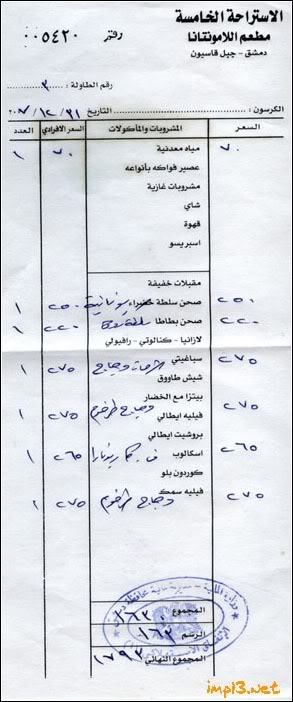 الاستراحة الخامسة
مطعم اللامونتانا
دمشق - جبل قاسيون
دفتر ٠٠٥٤٢٠
رقم الطاولة: ٣
الكرسون: التاريخ ٢٠٠٧/١٢/٣١
السعر المشروبات والمأكولات السعر الافرادي العدد
٧٠ مياه معدنية ٧٠ ١
عصير فواكه بأنواعه
مشروبات غازية
شاي
قهوة
اسبريسو
مقبلات خفيفة
٢٥٠ صحن سلطة خضراء يونانية ٢٥٠ ١
٢٢٠ صحن بطاطا سلطة ٢٢٠ ١
لازانيا - كنالوني - رافيولي
٢٧٥ سباغيتي دجاج ٢٧٥ ١
شيش طاووق
بيتزا مع الخضار
٢٧٥ فيليه ايطالي دجاج طرخوم ٢٧٥ ١
بروشيت ايطالي
٢٦٥ اسكالوب ٢٦٥ ١
كوردون بلو
٢٧٥ فيليه سمك دجاج طرخوم ٢٧٥ ١
المجموع ١٦٣٠
الرسم ١٦٣
المجموع النهائي ١٧٩٣
impi3.net